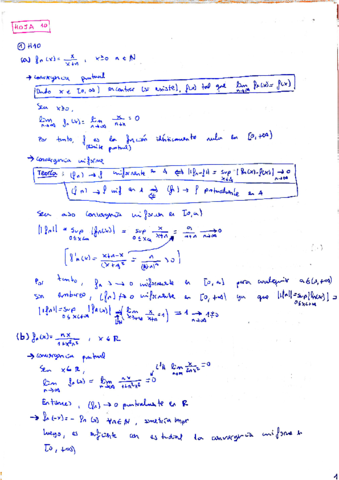 HOJA 10
① H10
(a) fₙ(x) = x/(x+n), x≥0 n∈ℕ
→ convergencia puntual
Dado x ∈ [0,∞) encontrar (si existe), f(x) tal que lim_{n→∞} fₙ(x) = f(x)
Sea x≥0,
lim_{n→∞} fₙ(x) = lim_{n→∞} x/(n+x) = 0
Por tanto, f es la función idénticamente nula en [0,+∞)
(límite puntual)
→ convergencia uniforme
Teoría: (fₙ) → f uniformemente en A ⇔ ||fₙ-f|| = sup_{x∈A} |fₙ(x)-f(x)| → 0 n→∞
(fₙ) → f unif en A ⇒ (fₙ) → f puntualmente en A
Sea a>0 convergencia uniforme en [0,a]
||fₙ|| = sup_{0≤x≤a} |fₙ(x)| = sup_{0≤x≤a} x/(x+n) = a/(a+n) → 0 n→∞
[f'ₙ(x) = (x+n-x)/(x+n)² = n/(x+n)² > 0]
Por tanto, fₙ → 0 uniformemente en [0,a] para cualquier a∈(0,+∞)
sin embargo, (fₙ) ↛ 0 uniformemente en [0,+∞) ya que ||fₙ|| = sup_{0≤x<+∞} |fₙ(x)| =
(b) fₙ(x) = nx/(1+n²x²), x∈ℝ
→ convergencia puntual
Sea x∈ℝ,
lim_{n→∞} fₙ(x) = lim_{n→∞} nx/(1+n²x²) = 0
L'H lim_{n→∞} x/(2nx²) = 0
Entonces, (fₙ) → 0 puntualmente en ℝ
→ fₙ(-x) = -fₙ(x) ∀n∈ℕ, simetría impar
luego, es suficiente con estudiar la convergencia uniforme en
[0,+∞)
1